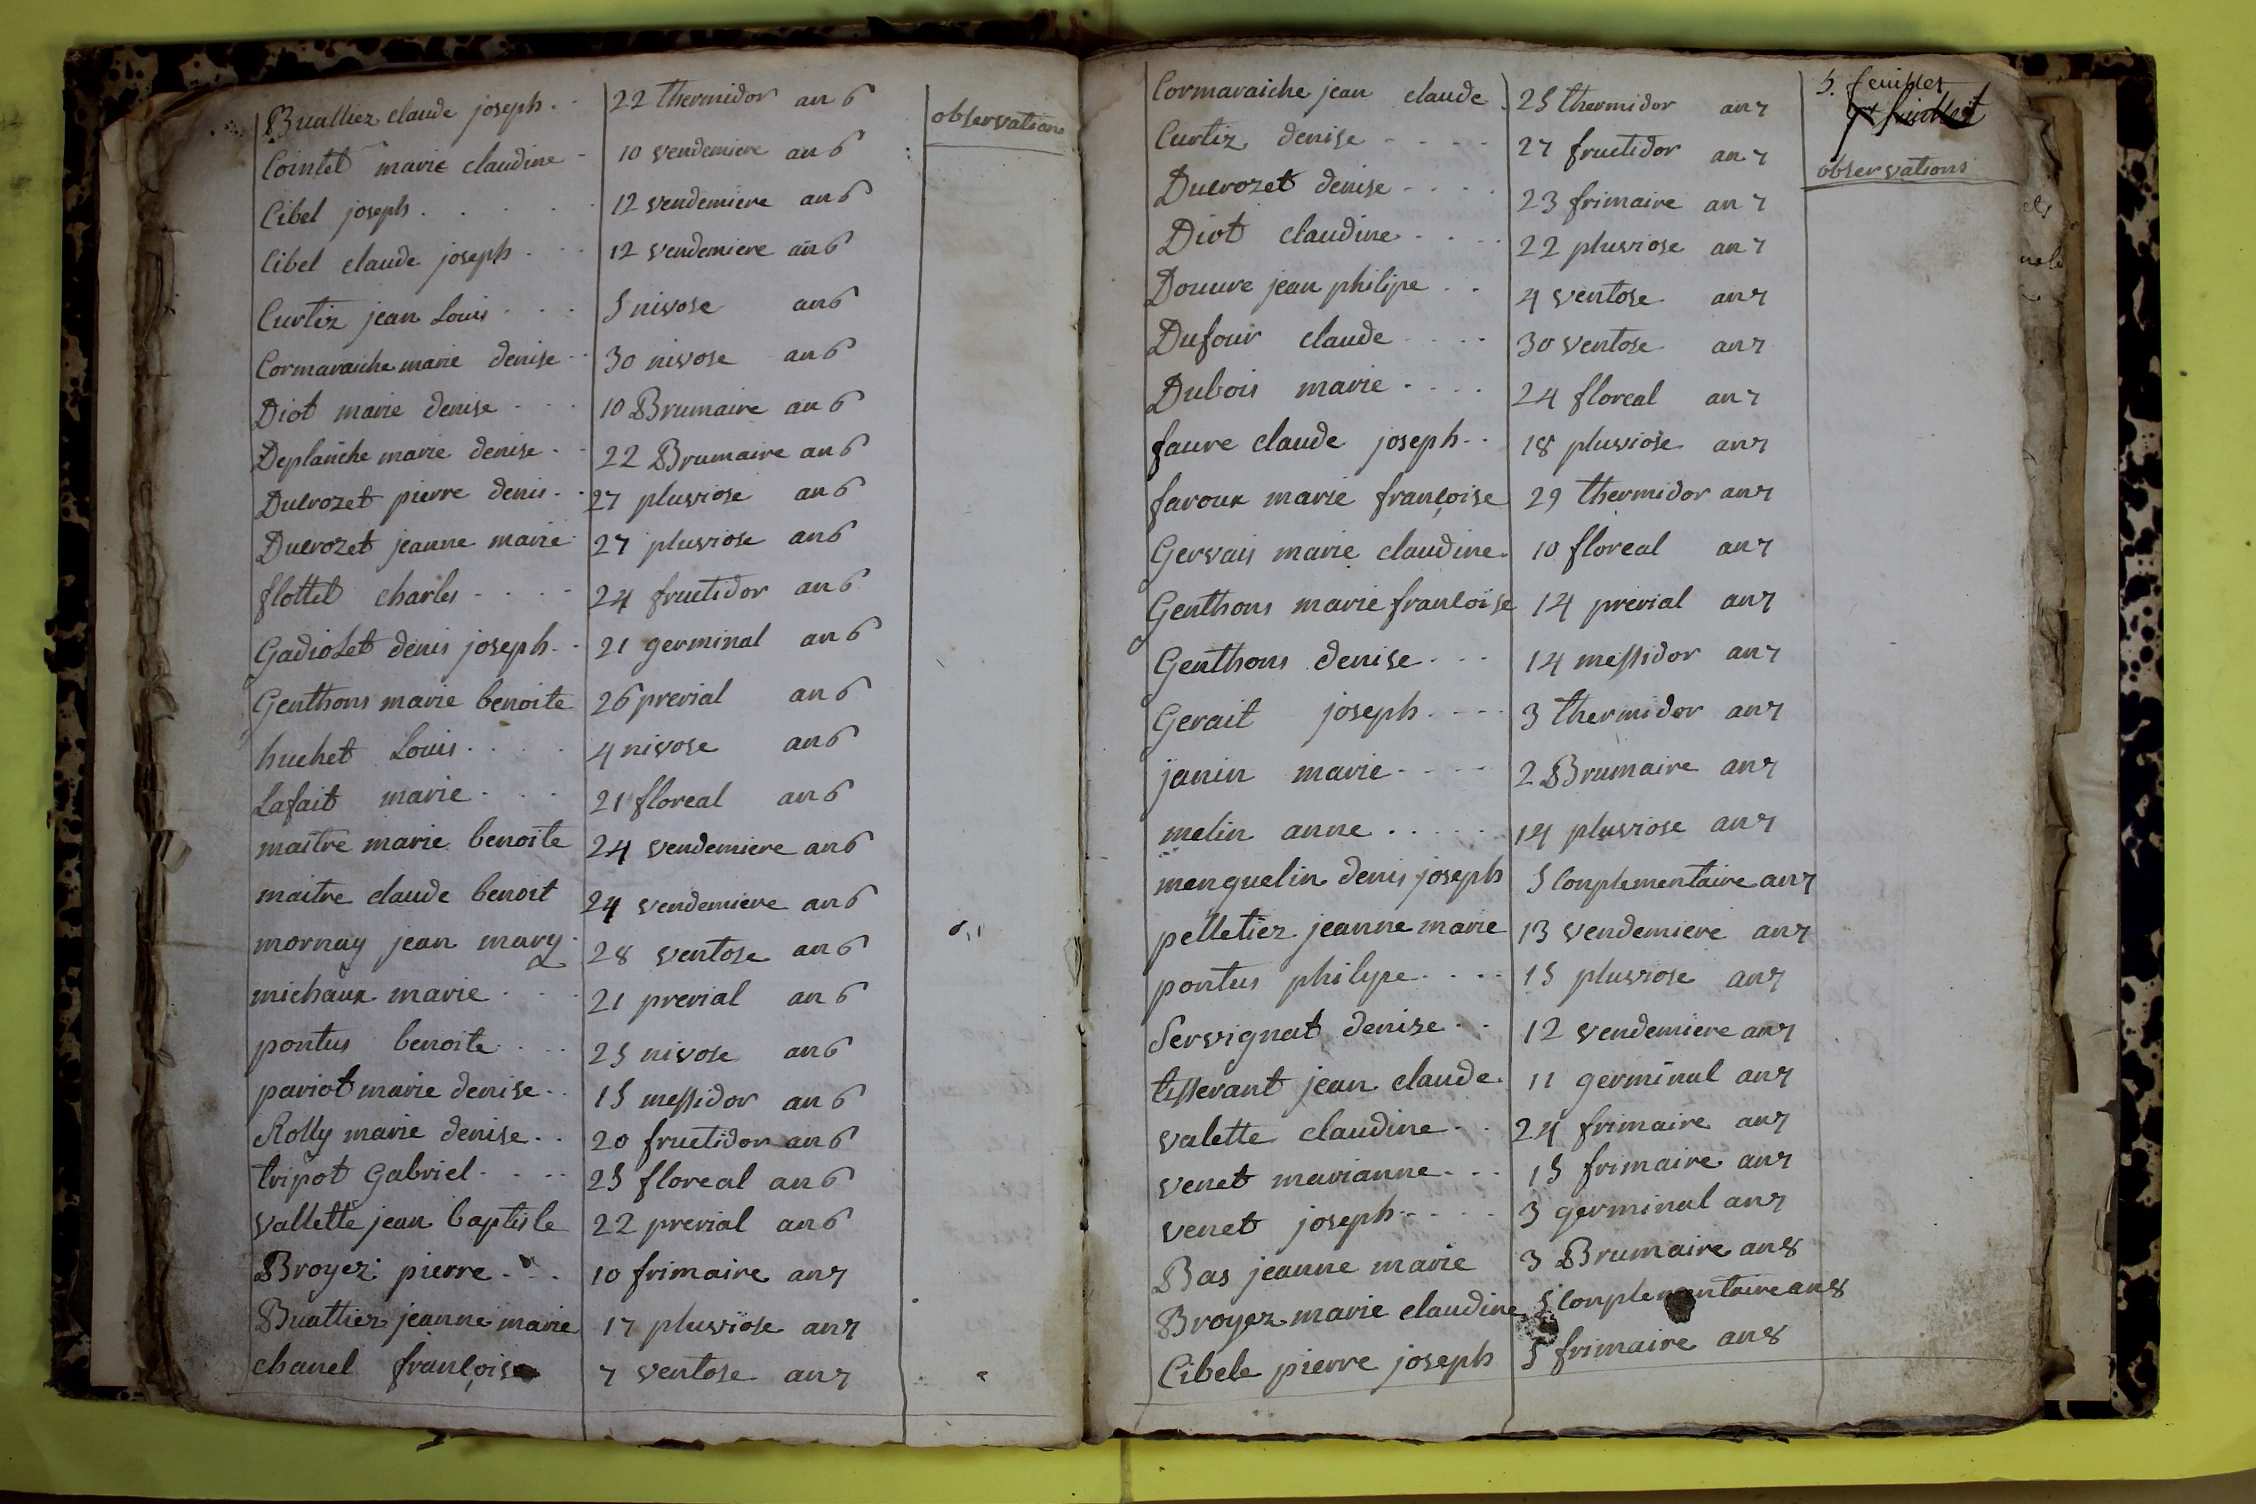 Buallier claude joseph . . 22 thermidor an 6
observations
Cointet marie claudine - 10 vendemiere an 6
Cibel joseph . . . . . 12 vendemiere an 6
Cibel claude joseph . . . 12 vendemiere an 6
Curtiz jean Louis . . . 5 nivose an 6
Cormaraiche marie denise . . 30 nivose an 6
Diot marie denise . . . 10 Brumaire an 6
Deplanche marie denise . . 22 Brumaire an 6
Ducrozet pierre denis . . 27 pluviose an 6
Ducrozet jeanne marie 27 pluviose an 6
flottet charles - . . - 24 fructidor an 6
Gadiolet denis joseph . . 21 germinal an 6
Genthons marie benoite 26 prerial an 6
huchet Louis . . . . 4 nivose an 6
Lafait marie . . . 21 floreal an 6
maitre marie benoite 24 vendemiere an 6
maitre claude benoit 24 vendemiere an 6
mornay jean mary . 28 ventose an 6
michaux marie . . . 21 prerial an 6
pontus benoite . . . 25 nivose an 6
pariot marie denise . . 15 messidor an 6
Rolly marie denise . . 20 fructidor an 6
tripot Gabriel . . . . 25 floreal an 6
Vallette jean baptiste 22 prerial an 6
Broyez pierre . . . 10 frimaire an 7
Buattier jeanne marie 17 pluviose an 7
chanel françoise 7 ventose an 7
5. feuillet
observations
Cormaraiche jean claude . 25 thermidor an 7
Curtiz denise - . . . 27 fructidor an 7
Ducrozet denise . . . . 23 frimaire an 7
Diot claudine . . . . 22 pluviose an 7
Douvre jean philipe . . 4 ventose an 7
Dufour claude . . . . 30 ventose an 7
Dubois marie . . . . 24 floreal an 7
faure claude joseph . . 18 pluviose an 7
faroux marie françoise 29 thermidor an 7
Gervais marie claudine . 10 floreal an 7
Genthons marie francoise 14 prerial an 7
Genthons denise . . . 14 messidor an 7
Gerait joseph . - - . 3 thermidor an 7
janin marie . . . . 2 Brumaire an 7
melin anne . . . . . 14 pluviose an 7
menguelin denis joseph 5 Conplementaire an 7
pelletiez jeanne marie 13 vendemiere an 7
pontus philipe . . . . 15 pluviose an 7
Servignat denise . . 12 vendemiere an 7
tisserant jean claude . 11 germinal an 7
valette claudine . . 24 frimaire an 7
venet marianne . . . 15 frimaire an 7
venet joseph . . . . 3 germinal an 7
Bas jeanne marie 3 Brumaire an 8
Broyez marie claudine 5 Conplementaire an 8
Cibele pierre joseph 5 frimaire an 8